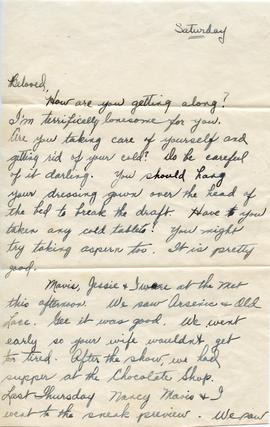 Saturday
Beloved,
How are you getting along?
I'm terrifically lonesome for you.
Are you taking care of yourself and
getting rid of your cold? Do be careful
of it darling. You should hang
your dressing gown over the head of
the bed to break the draft. Have you
taken any cold tablets? You might
try taking aspern too. It is pretty
good.
Mavis, Jessie & I were at the Met
this afternoon. We saw Arsenic & Old
Lace. Gee it was good. We went
early so your wife wouldn't get
too tired. After the show, we had
supper at the Chocolate Shop.
Last Thursday Nancy Mavis & I
went to the sneak preview. We saw